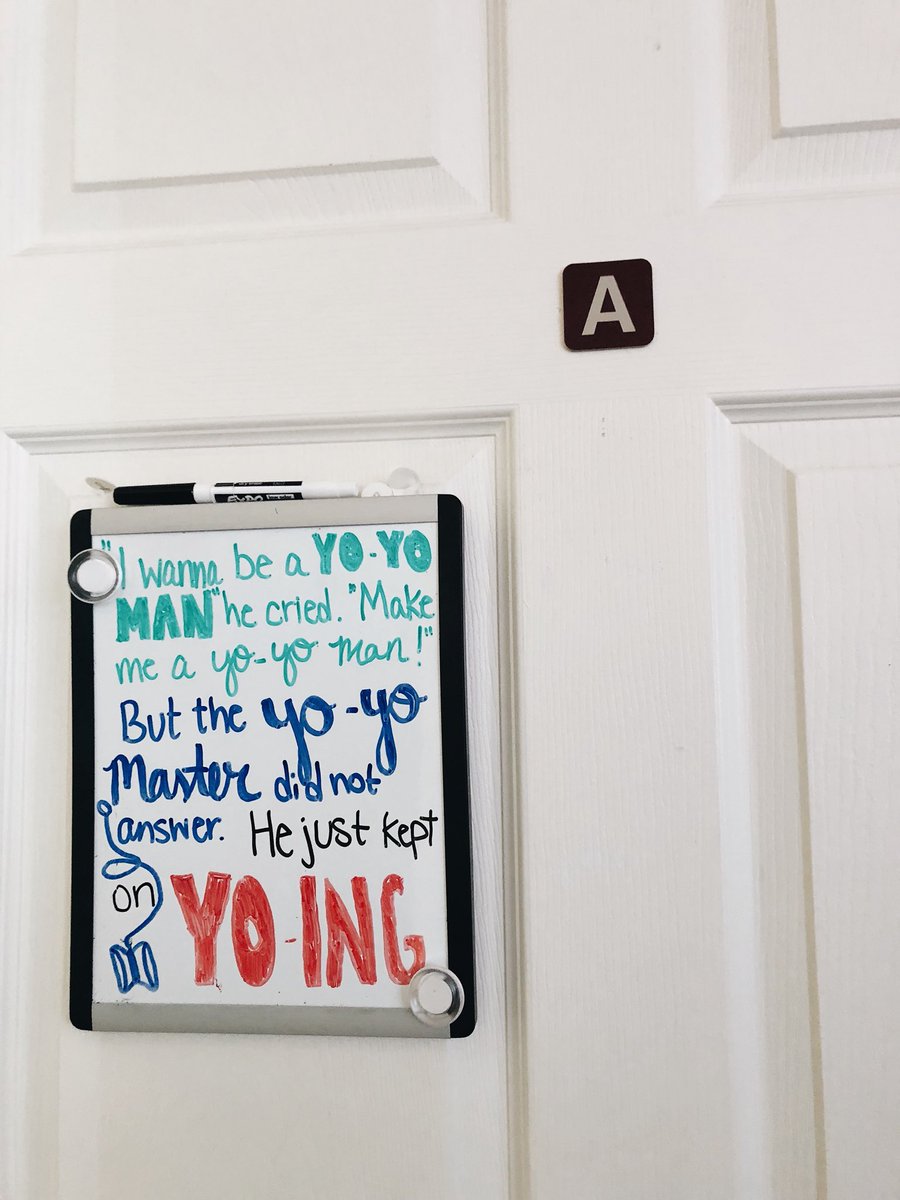 A
EXPO
"I wanna be a YO-YO
MAN" he cried. "Make
me a yo-yo man!"
But the yo-yo
Master did not
answer. He just kept
on YO-ING